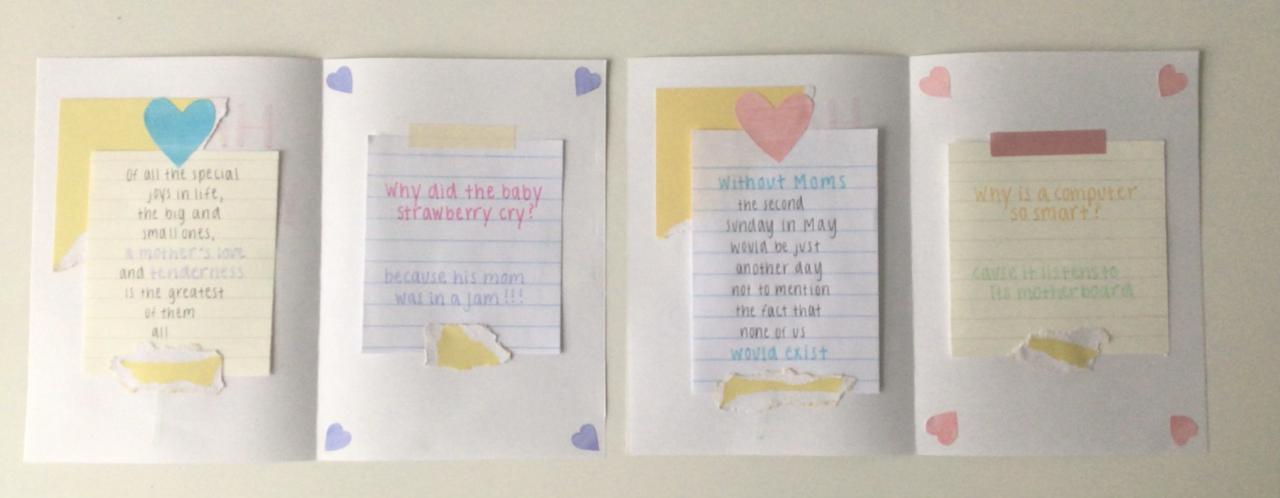 Of all the special
joys in life,
the big and
small ones,
a mother's love
and tenderness
is the greatest
of them
all
Why did the baby
strawberry cry?
because his mom
was in a jam!!!
Without Moms
the second
sunday in May
would be just
another day
not to mention
the fact that
none of us
would exist
Why is a computer
so smart?
cause it listens to
its motherboard